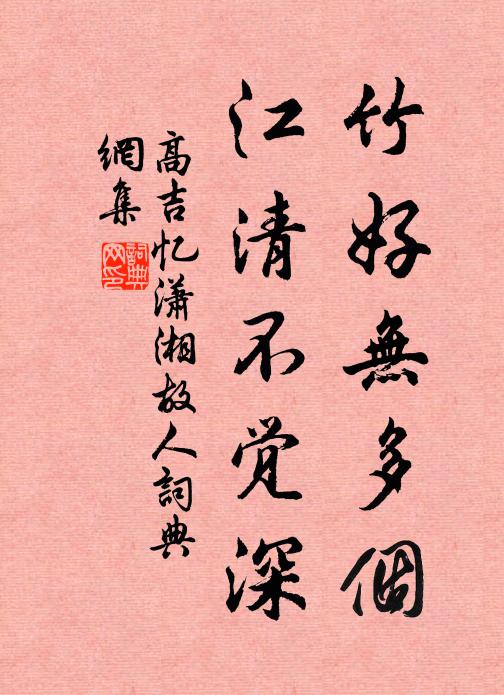 竹好無多個
江清不觉深
高吉忆瀟湘故人詞典
網集
詞典
网印